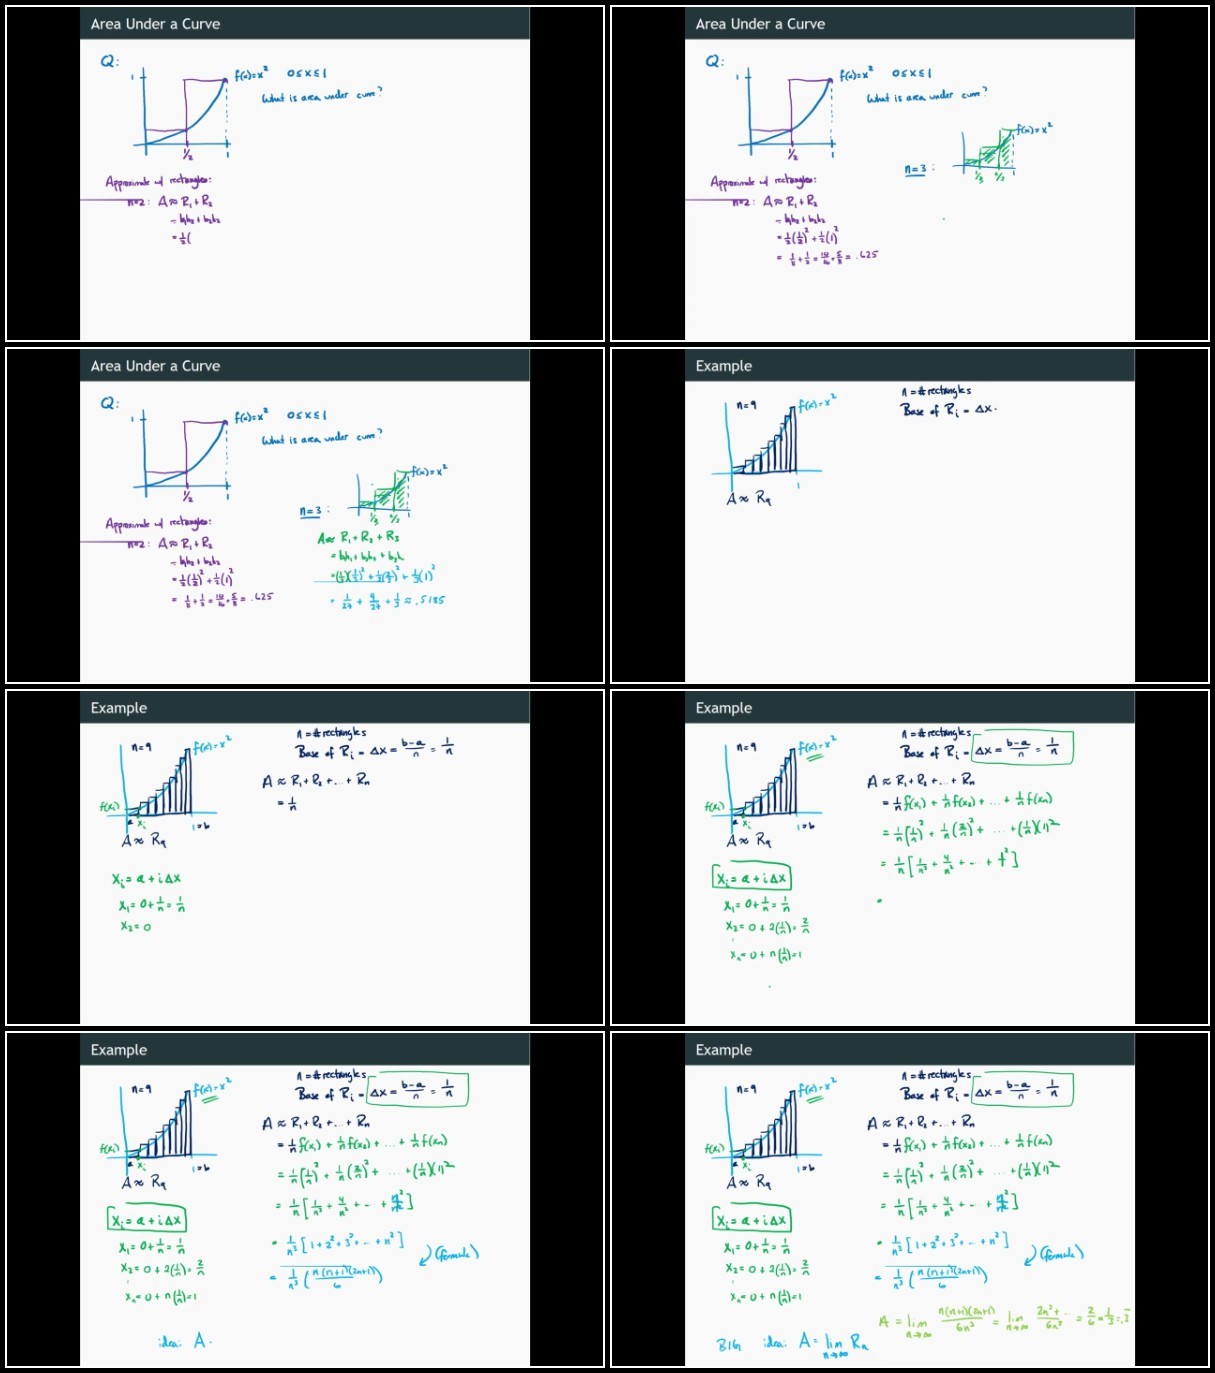 Area Under a Curve
Q:
1
f(x)=x² 0≤x≤1
What is area under curve?
1/2 1
Approximate w/ rectangles:
n=2: A≈R₁+R₂
= b₁h₁+b₂h₂
=½(
Area Under a Curve
Q:
1
f(x)=x² 0≤x≤1
What is area under curve?
f(x)=x²
n=3:
1
1/2 1
Approximate w/ rectangles:
n=2: A≈R₁+R₂
= b₁h₁+b₂h₂
=½(½)²+½(1)²
= 1/8+1/2=10/16=5/8=.625
Area Under a Curve
Q:
1
f(x)=x² 0≤x≤1
What is area under curve?
f(x)=x²
n=3:
1
1/2 1
Approximate w/ rectangles:
n=2: A≈R₁+R₂
= b₁h₁+b₂h₂
=½(½)²+½(1)²
= 1/8+1/2=10/16=5/8=.625
A≈R₁+R₂+R₃
=(1/3)(1/3)²+1/3(2/3)²+1/3(1)²
= 1/27+4/27+1/3≈.5185
Example
n=9
f(x)=x²
1
A≈R₉
n=#rectangles
Base of Rᵢ=Δx
Example
n=9
f(x)=x²
f(xᵢ)
a xᵢ 1=b
A≈R₉
n=#rectangles
Base of Rᵢ=Δx=(b-a)/n=1/n
A≈R₁+R₂+...+Rₙ
=1/n
xᵢ=a+iΔx
x₁=0+1/n=1/n
x₂=0
Example
n=9
f(x)=x²
f(xᵢ)
a xᵢ 1=b
A≈R₉
n=#rectangles
Base of Rᵢ=Δx=(b-a)/n=1/n
A≈R₁+R₂+...+Rₙ
=1/n f(x₁)+1/n f(x₂)+...+1/n f(xₙ)
=1/n(1/n)²+1/n(2/n)²+...+(1/n)(1)²
=1/n[1/n²+4/n²+...+1²]
xᵢ=a+iΔx
x₁=0+1/n=1/n
x₂=0+2(1/n)=2/n
xₙ=0+n(1/n)=1
Example
n=9
f(x)=x²
f(xᵢ)
a xᵢ 1=b
A≈R₉
n=#rectangles
Base of Rᵢ=Δx=(b-a)/n=1/n
A≈R₁+R₂+...+Rₙ
=1/n f(x₁)+1/n f(x₂)+...+1/n f(xₙ)
=1/n(1/n)²+1/n(2/n)²+...+(1/n)(1)²
=1/n[1/n²+4/n²+...+n²/n²]
=1/n³[1+2²+3²+...+n²]
(formula)
=1/n³(n(n+1)(2n+1)/6)
xᵢ=a+iΔx
x₁=0+1/n=1/n
x₂=0+2(1/n)=2/n
xₙ=0+n(1/n)=1
idea: A
Example
n=9
f(x)=x²
f(xᵢ)
a xᵢ 1=b
A≈R₉
n=#rectangles
Base of Rᵢ=Δx=(b-a)/n=1/n
A≈R₁+R₂+...+Rₙ
=1/n f(x₁)+1/n f(x₂)+...+1/n f(xₙ)
=1/n(1/n)²+1/n(2/n)²+...+(1/n)(1)²
=1/n[1/n²+4/n²+...+n²/n²]
=1/n³[1+2²+3²+...+n²]
(formula)
=1/n³(n(n+1)(2n+1)/6)
xᵢ=a+iΔx
x₁=0+1/n=1/n
x₂=0+2(1/n)=2/n
xₙ=0+n(1/n)=1
A=lim n→∞ n(n+1)(2n+1)/6n³=lim n→∞ 2n³+.../6n³=2/6=1/3=.3̅
BIG idea: A=lim n→∞ Rₙ